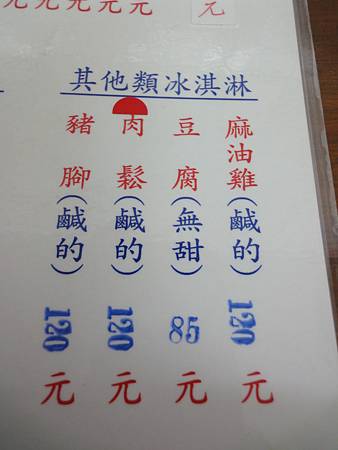 元元元元
元
其他類冰淇淋
麻油雞(鹹的)120元
豆腐(無甜)85元
肉鬆(鹹的)120元
豬腳(鹹的)120元